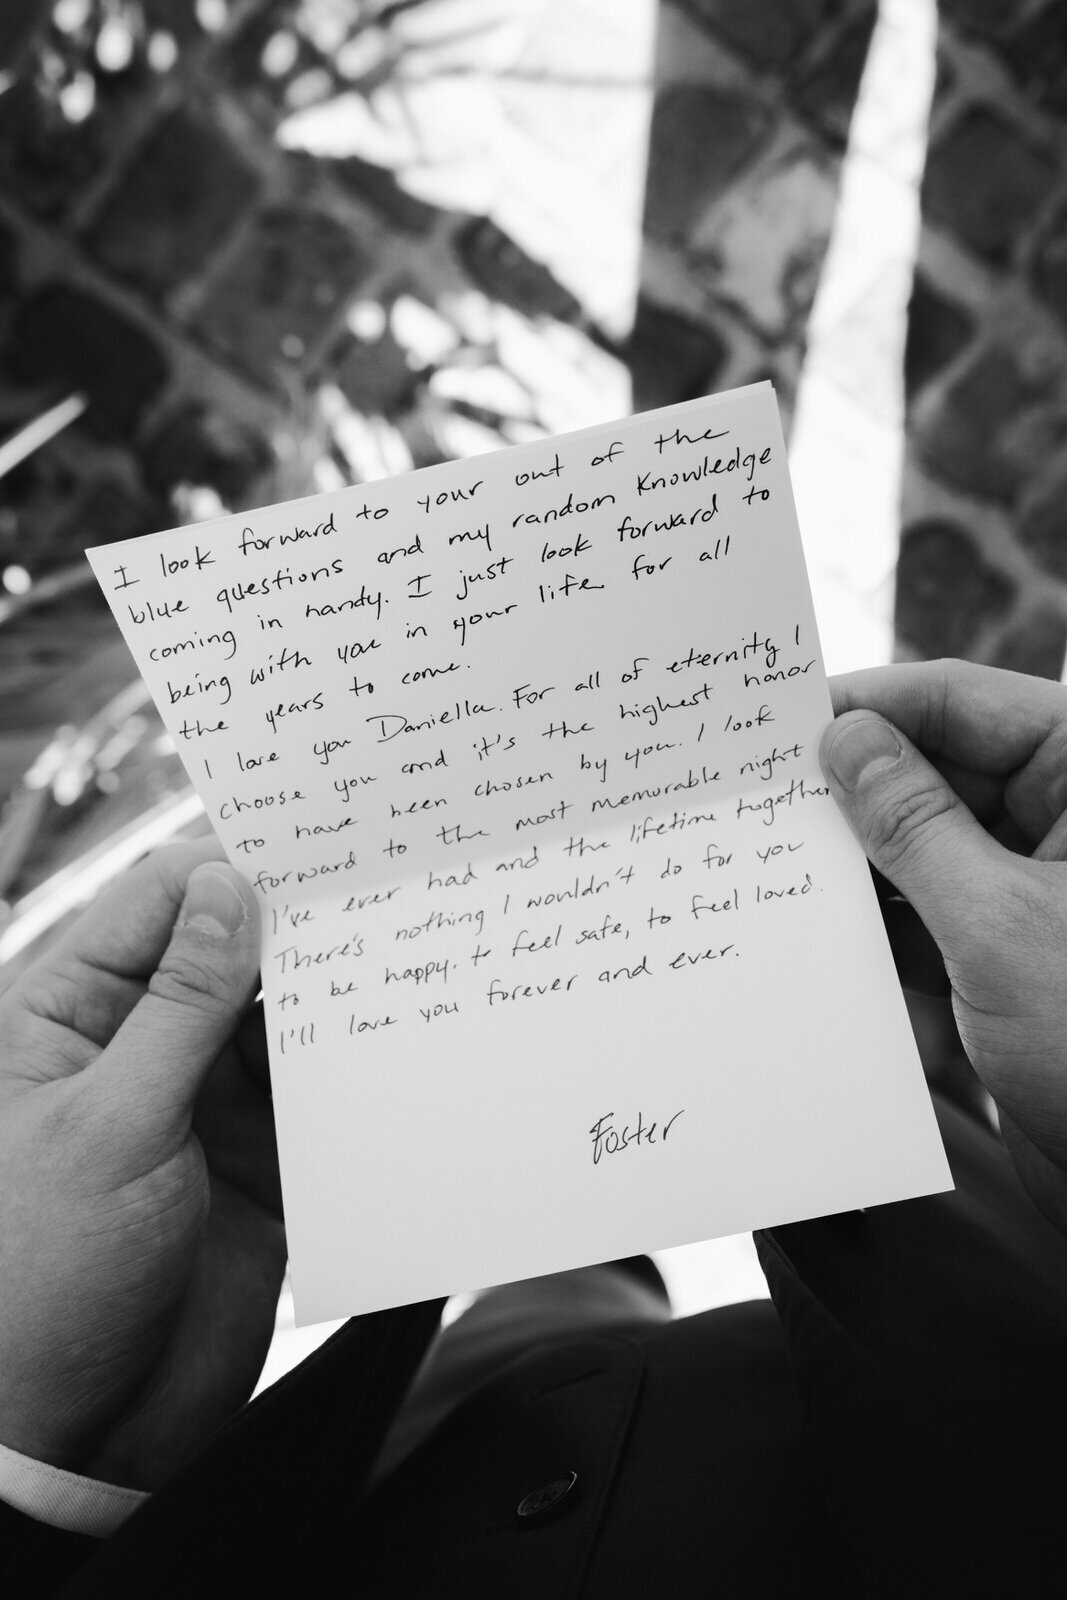 I look forward to your out of the
blue questions and my random knowledge
coming in handy. I just look forward to
being with you in your life for all
the years to come.
I love you Daniella. For all of eternity I
choose you and it's the highest honor
to have been chosen by you. I look
forward to the most memorable night
I've ever had and the lifetime together
There's nothing I wouldn't do for you
to be happy, to feel safe, to feel loved.
I'll love you forever and ever.
Foster